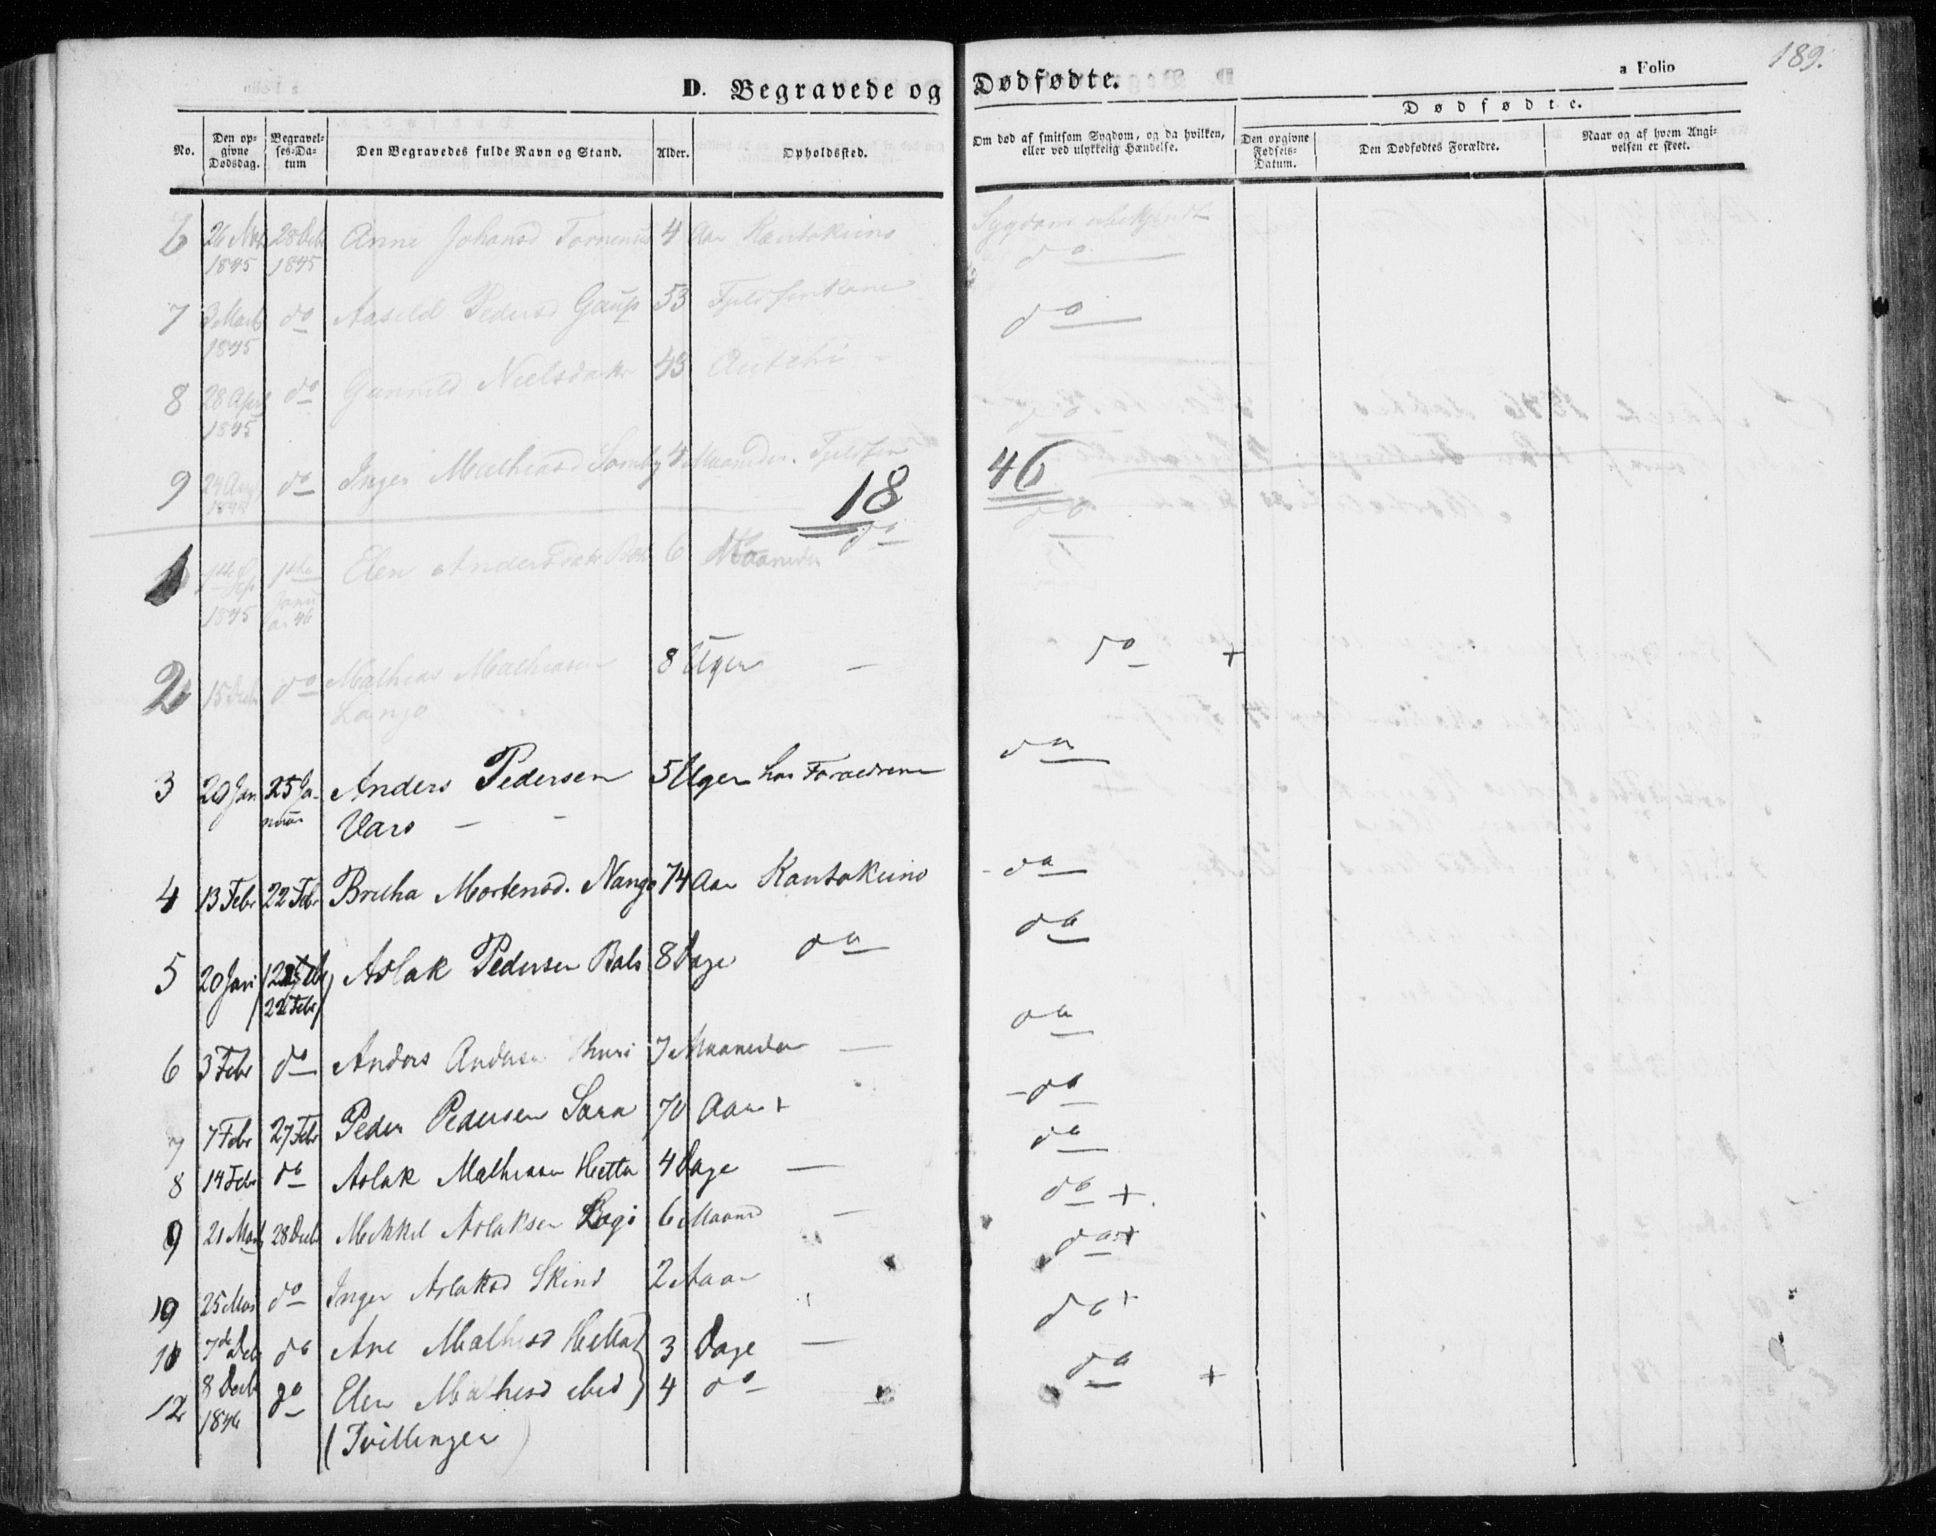 189.
a Folio
D. Begravede og Dødfødte.
No.
Den op-
givne
Dødsdag.
Begravel-
ses-Da-
tum
Den Begravedes fulde Navn og Stand.
Alder.
Opholdssted.
Om død af smitsom Sygdom, og da hvilken,
eller ved ulykkelig Hændelse.
Dødfødte.
Den opgivne
Fødsels-
Datum.
Den Dødfødtes Forældre.
Naar og af hvem Angi-
velsen er skeet.
6 26 1845 28 Decbr 1845 Anne Johansd 4 Aar Kautokeino Sygdom ubekjendt
do
7 3 Marts 1845 do Aasild Pedersd Gaup 53 do
8 28 April 1845 do Gunnild Nielsdatr 43 Autzhi
9 24 Aug do Inger Mathiasd Somby 4 Maaneder
18 46
do do
1 1845 46 Elen Andersdatr 6 Maaneder
2 15 Decbr do Mathias Mathiasen
Lango
8 Uger — do +
3 20 Jan 25 Ja-
nuar
Anders Pedersen
Vars — -
5 Uger hos Forældrene do
4 13 Febr 22 Febr Bretha Mortensd. Nango 74 Aar Kautokeino - do
5 20 Jan 22 Febr Aslak Pedersen Bals 8 Dage do do
6 3 Febr do Anders Andersen 7 Maaneder — do
7 7 Febr 27 Febr Peder Pedersen Sara 70 Aar + - do
8 14 Febr do Aslak Mathisen Hetta 4 Dage — do
9 21 Marts 28 Decbr Mikkel Aslaksen 6 Maaned — do +
10 25 Mai do Inger Aslaksd Skind 2 Aar do +
11 7de Decb do Ane Mathisd Hetta 3 Dage — do +
12 8 Decbr 1846 do Elen Mathisd ibid 4 do do +
(Tvillinger)